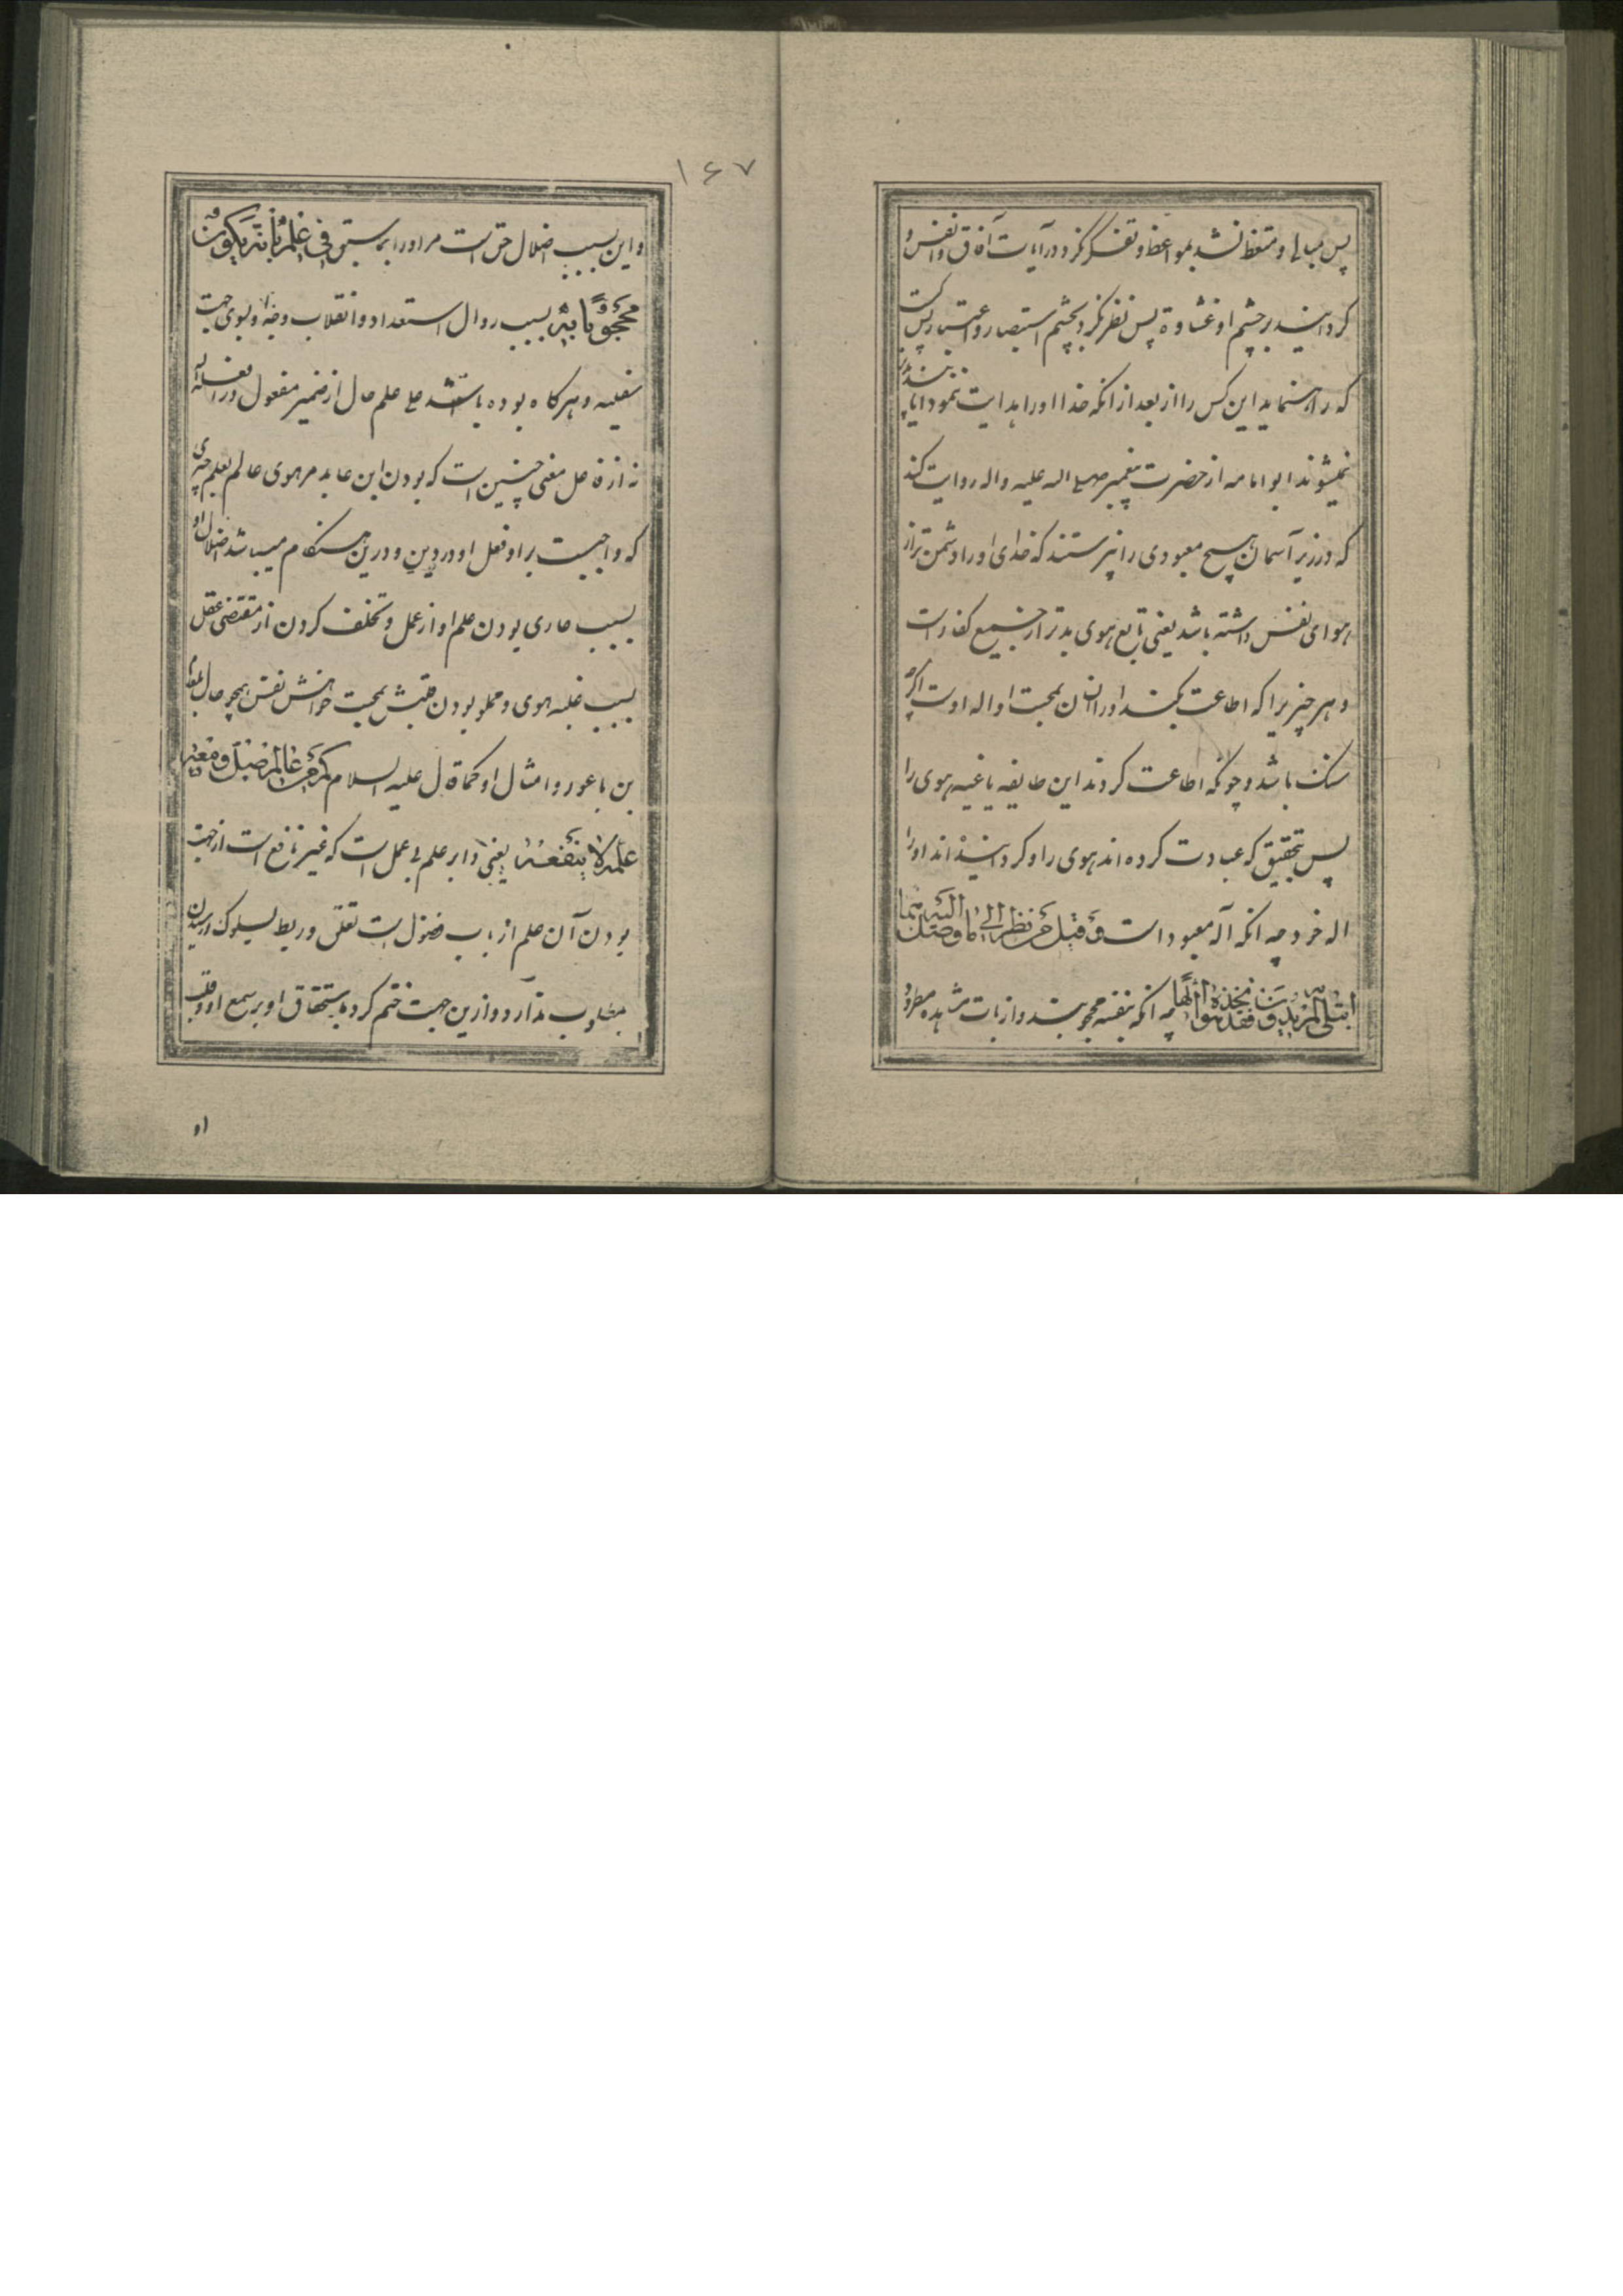 پس مبالی و متعظ نشد بمواعظ و تفکر نکرد در آیات آفاق و انفس و
کردانید بر چشم او غشاوة پس نظر نکرد بچشم استبصار و اعتبار پس کیست
که راه نماید این کس را از بعد از انکه خدا او را هدایت ننمود ایا پند پذیر
نمیشوند ابو امامه از حضرت پیغمبر صلی اله علیه واله روایت کند
که در زیر آسمان هیچ معبودی را نپرستند که خدای او را دشمن تر از
هوای نفس داشته باشد یعنی تابع هوی بدتر از جمیع کفار است
و هر چیز یرا که اطاعت بکند او را انسان بمحبت او اله اوست اگر چه
سنک باشد و چونکه اطاعت کردند این طایفه یاغیه هوی را
پس بتحقیق که عبادت کرده اند هوی را و کردانیده اند او را
اله خرد چه انکه آله معبود است وَقیلَ مَن نظر الی ما وصل الیه نما
ابتلی لم یزید و من تخذه الهاً فقد هوا چه انکه بنفسه محجوبند و از بات مشاهده مطرود
۱۶۷
و این بسبب اضلال حق است مر او را بما سبق فی عِلمِهِ بأنَّه یَکون
محجوباً به بسبب زوال استعداد و انقلاب وجه او بسوی جهت
سفلیه و هرکاه بوده باشد علی علم حال از ضمیر مفعول در اضله اله
نه از فاعل معنی چنین است که بودن این عابد مر هوی عالم بعلم چیزی
که واجبست بر او فعل او در دین و درین هنکام میباشد اضلال او
بسبب عاری بودن علم او از عمل و تخلف کردن از مقتضی عقل
بسبب غلبه هوی و مملو بودن قلبش بمحبت خواهش نفس همچو حال بلعم
بن باعور و امثال او کما قال علیه السلام کم من عالم ضل و معه
علمه لا ینفعه یعنی دابر علم بی عمل است که غیر نافع است از جهت
بودن آن علم از باب فضول است تعلق و ربط بسلوک و رسیدن
بمطلوب ندارد و ازین جهت ختم کرد باستحقاق او بر سمع او و قلب
او